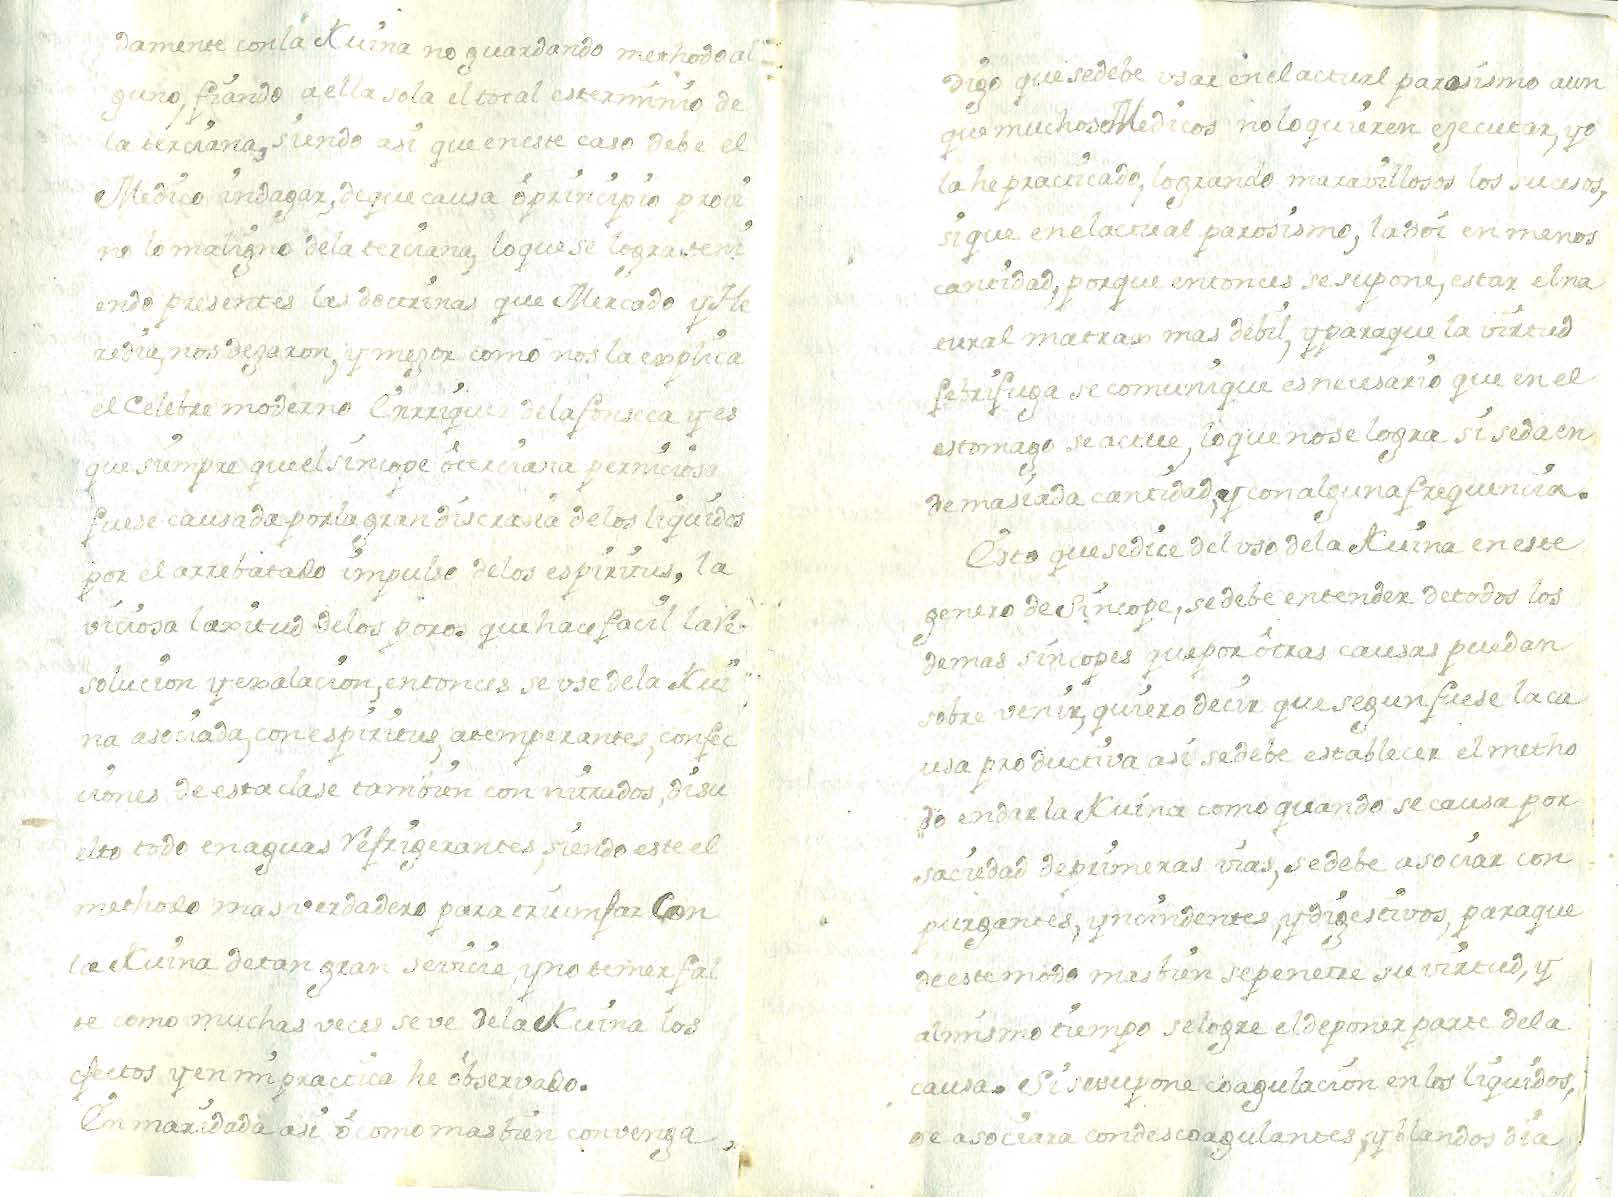 damente con la Kuina no guardando methodo al
guno, fiando a ella sola el total esterminio de
la terciana, siendo asi que en este caso debe el
Medico indagar, de que causa ò principio provi
no lo maligno de la terciana, lo que se logra teni
endo presentes las doctrinas que Mercado y He
redia, nos dejaron, y mejor como nos la explica
el Celebre moderno Enrriquez de la fonseca y es
que siempre que el sincope ô terciana perniciosa
fuese causada por la gran discrasia de los liquidos
por el arrebatado impulso de los espiritus, la
viciosa laxitud de los poros que hace facil la re
solucion y exalacion, entonces se use de la Kui
na asociada, con espiritus, atemperantes, confec
ciones de esta clase tambien con nitrados, disu
elto todo en aguas refrigerantes, siendo este el
methodo mas verdadero para triumfar Con
la Kuina de tan gran sevicie, y no temer fal
te como muchas veces se ve de la Kuina los
efectos y en mi practica he observado.
En maridada asi ô como mas bien convenga,
digo que se debe usar en el actual parosismo aun
que muchos Medicos no lo quieren ejecutar, yo
la he practicado, logrando maravillosos los sucesos,
si que en el actual parosismo, la doi en menos
cantidad, porque entonces se supone, estar el na
tural matrax mas debil, y para que la virtud
febrifuga se comunique es necesario que en el
estomago se actue, lo que no se logra si se da en
demasiada cantidad, y con alguna frequencia.
Esto que se dice del uso de la Kuina en este
genero de Sincope, se debe entender de todos los
demas sincopes que por ôtras causas puedan
sobre venir, quiero decir que segun fuese la ca
usa productiva asi se debe establecer el metho
do en dar la Kuina como quando se causa por
saciedad de primeras vias, se debe asociar con
purgantes, yncindentes, y digestivos, para que
de este modo mas bien se penetre su virtud, y
al mismo tiempo se logre el deponer parte de la
causa. Si se supone coagulacion en los liquidos,
se asociara con descoagulantes, y blandos dia